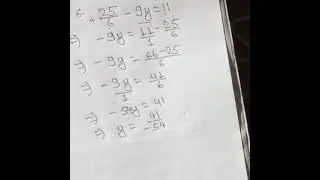 6.
+ 25/6 - 9y = 11
⇒ - 9y = 11/1 - 25/6
⇒ - 9y = 66-25/6
⇒ - 9y/1 = 41/6
⇒ - 54y = 41
⇒ y = 41/-54